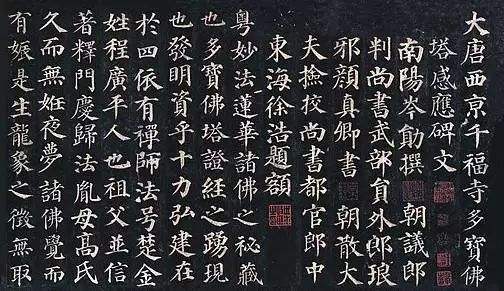 大唐西京千福寺多寶佛
塔感應碑文
南陽岑勛撰 朝議郎
判尚書武部員外郎琅
邪顏真卿書 朝散大
夫撿校尚書都官郎中
東海徐浩題額
粵妙法蓮華諸佛之秘藏
也多寶佛塔證經之踴現
也發明資乎十力弘建在
於四依有禪師法号楚金
姓程廣平人也祖父並信
著釋門慶歸法胤母高氏
久而無姙夜夢諸佛覺而
有娠是生龍象之徵無取